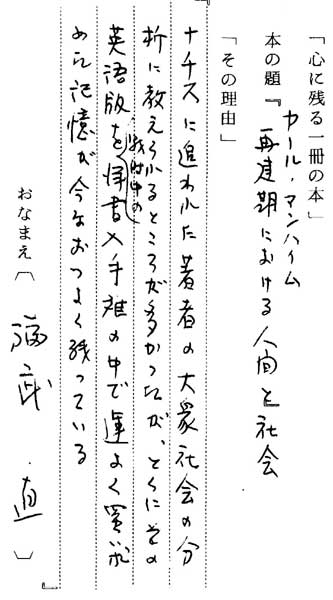 「心に残る一冊の本」
カール・マンハイム
本の題『再建期における人間と社会
「その理由」
ナチスに追われた著者の大衆社会の分
析に教えられるところが多かったが、とくにその
英語版を戦時中の洋書入手難の中で運よく買求
めた記憶が今なおつよく残っている
おなまえ〔 福武 直 〕
』